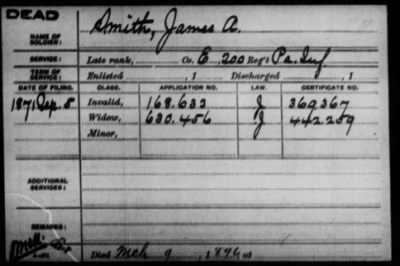 DEAD
NAME OF SOLDIER: Smith, James A.
SERVICE: Late rank, Co. E, 200 Reg't Pa. Inf
TERM OF SERVICE: Enlisted , 1 Discharged , 1
DATE OF FILING. CLASS. APPLICATION NO. LAW. CERTIFICATE NO.
1871 Sep. 8 Invalid, 168.633 J 369367
Widow, 630.456 J 442.259
Minor,
ADDITIONAL SERVICES:
REMARKS:
Died Mch 9, 1896